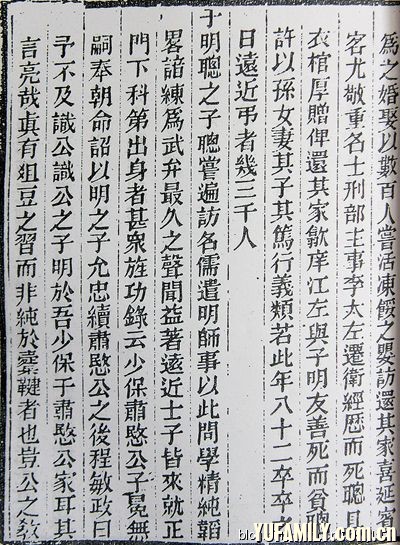 爲之婚娶以數百人嘗活凍餒之嬰訪還其家喜延賓
客尤敬重名士刑部主事李太左遷衛經歷而死聰具
衣棺厚贈俾還其家歙庠江左與子明友善死而貧聰
許以孫女妻其子其篤行義類若此年八十二卒卒之
日遠近弔者幾三千人
于明聰之子聰嘗遍訪名儒遣明師事以此問學精純韜
畧諳練爲武弁最久之聲聞益著遠近士子皆來就正
門下科第出身者甚衆旌功錄云少保肅愍公子冕無
嗣奉朝命詔以明之子允忠續肅愍公之後程敏政曰
予不及識公識公之子明於吾少保于肅愍公家耳其
言亮哉眞有俎豆之習而非純於櫜鞬者也豈公之敎
YUFAMILY.com.cn